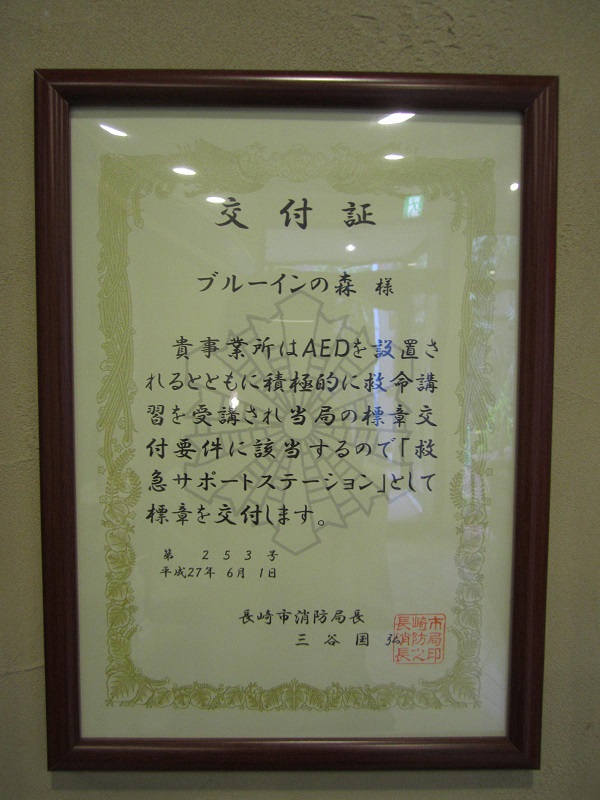 交付証
ブルーインの森 様
貴事業所はAEDを設置さ
れるとともに積極的に救命講
習を受講され当局の標章交
付要件に該当するので「救
急サポートステーション」として
標章を交付します。
第 253号
平成27年 6月 1日
長崎市消防局長
三谷国弘
長崎市
消防局
長之印